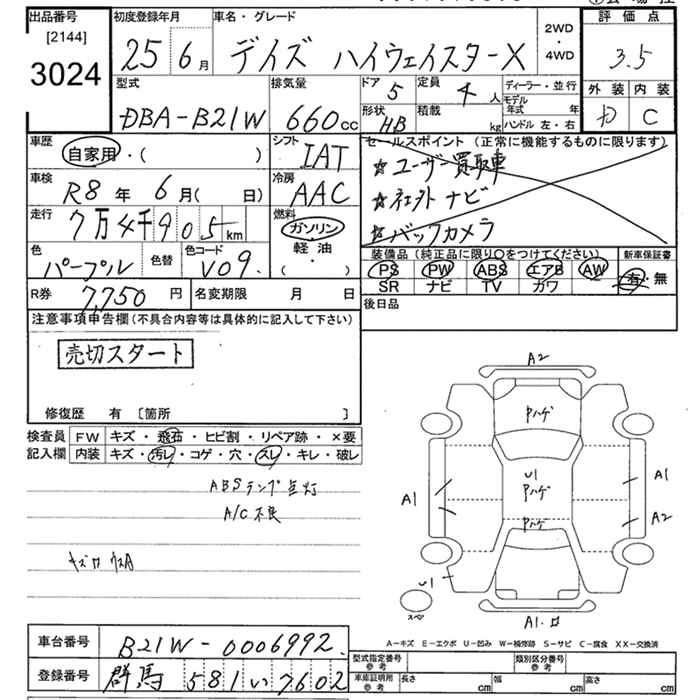 出品番号
[2144]
3024
初度登録年月
25 6月
車名・グレード
デイズ ハイウェイスターX
2WD
・
4WD
評価点
3.5
型式
DBA-B21W
排気量
660cc
ドア 5
定員 4人
形状 HB
積載 kg
ディーラー・並行
モデル年式 年
ハンドル 左・右
外装 内装
D C
車歴
自家用・( )
シフト
IAT
車検
R8年 6月( 日)
冷房
AAC
走行
7万4千905km
燃料
ガソリン
軽油
( ・ )
色
パープル
色替
色コード
V09.
R券 7,750 円
名変期限 月 日
セールスポイント(正常に機能するものに限ります)
☆ユーザー買取車
☆社外ナビ
☆バックカメラ
装備品(純正品に限り○をつけてください)
PS PW ABS エアB AW
SR ナビ TV カワ
新車保証書
有・無
後日品
注意事項申告欄(不具合内容等は具体的に記入して下さい)
売切スタート
修復歴 有 [箇所 ]
検査員記入欄
FW キズ・飛石・ヒビ割・リペア跡・×要
内装 キズ・汚レ・コゲ・穴・スレ・キレ・破レ
ABSランプ点灯
A/C不良
A2
Pハゲ
U1
Pハゲ
Pハゲ
A1
A1
A2
U1
スペア
A1.ロ
A-キズ E-エクボ U-凹み W-補修跡 S-サビ C-腐食 XX-交換済
車台番号 B21W-0006992.
登録番号 群馬 581 い 7602
型式指定番号 参考
類別区分番号 参考
車庫証明用 参考
長さ cm 幅 cm 高さ cm